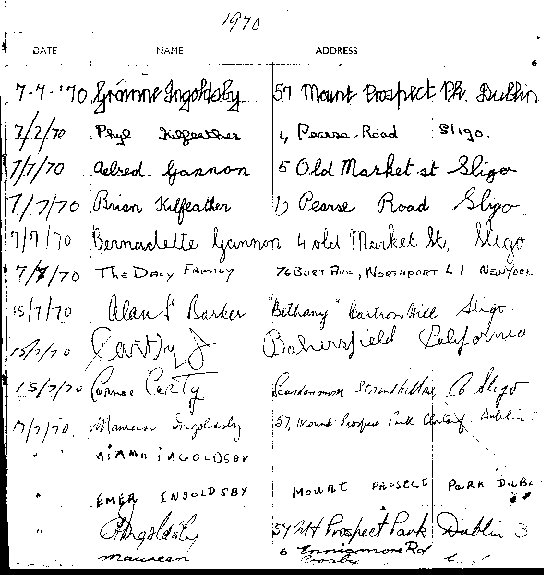 1970
DATE NAME ADDRESS
7-7-'70 Gráinne Ingoldsby 57 Mount Prospect Pk. Dublin
7/7/70 Phyl Kilfeather 1, Pearse Road Sligo.
7/7/70 Aelred Gannon 5 Old Market st Sligo
7/7/70 Brian Kilfeather 1) Pearse Road Sligo
7/7/70 Bernadette Gannon 4 old Market St, Sligo
7/7/70 The Daly Family 76 Burt Ave, Northport L I New York
15/7/70 Alan Barker "Bethany" Cartron Hill Sligo
15/7/70 Carthy J Bakersfield California
15/7/70 Carty Strandhill Co Sligo
7/7/70 Maureen Ingoldsby 57, Mount Prospect Park Clontarf Dublin 3
" Niamh Ingoldsby
" Emer Ingoldsby Mount Prosect Park Dubl
" Ingoldsby 57 Mt Prospect Park Dublin 3
Maureen 6 Rd
Crosby